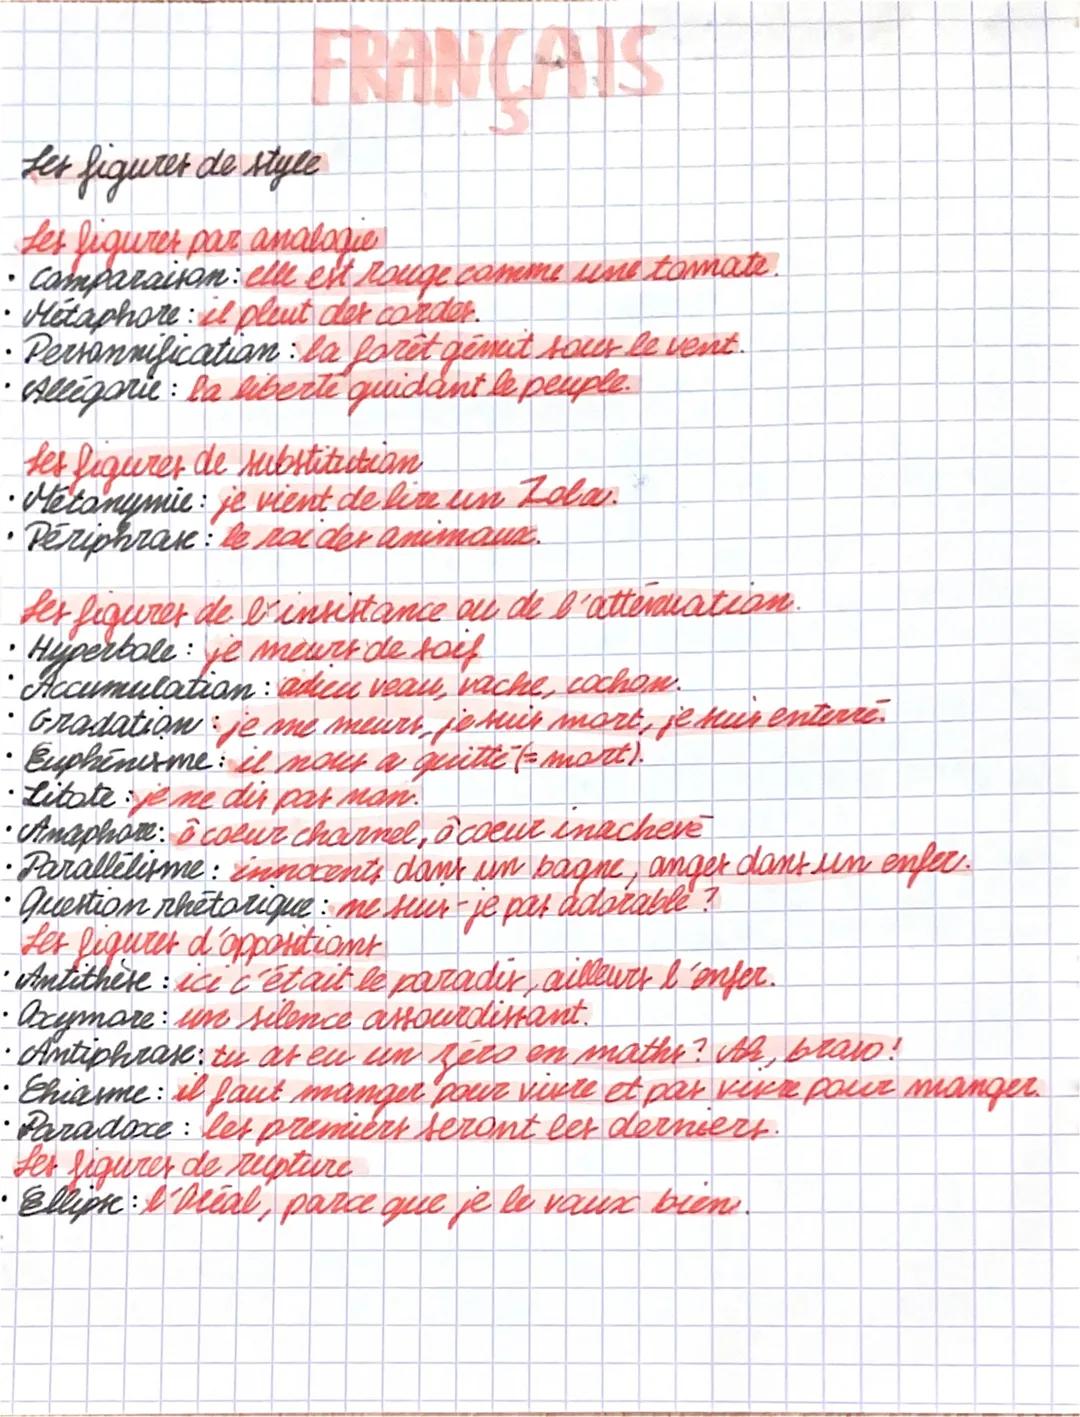 FRANÇAIS
Les figures de style
Les figures par analogie
• Comparaison : elle est rouge comme une tomate.
• Métaphore : il pleut des cordes.
• Personnification : la forêt gémit sous le vent.
• Allégorie : La liberté guidant le peuple.
Les figures de substitution
• Métonymie : je vient de lire un Zola.
• Périphrase : le roi des animaux.
Les figures de l'insistance ou de l'atténuation.
• Hyperbole : je meurs de soif
• Accumulation : adieu veau, vache, cochon.
• Gradation : je me meurs, je suis mort, je suis enterré.
• Euphémisme : il nous a quitté (= mort).
• Litote : je ne dis pas non.
• Anaphore : ô coeur charnel, ô coeur inachevé
• Parallélisme : innocents dans un bagne, anges dans un enfer.
• Question rhétorique : ne suis-je pas adorable ?
Les figures d'oppositions
• Antithèse : ici c'était le paradis, ailleurs l'enfer.
• Oxymore : un silence assourdissant.
• Antiphrase : tu as eu un zéro en maths ? Ah, bravo !
• Chiasme : il faut manger pour vivre et pas vivre pour manger.
• Paradoxe : les premiers seront les derniers.
Les figures de rupture
• Ellipse : l'Oréal, parce que je le vaux bien.